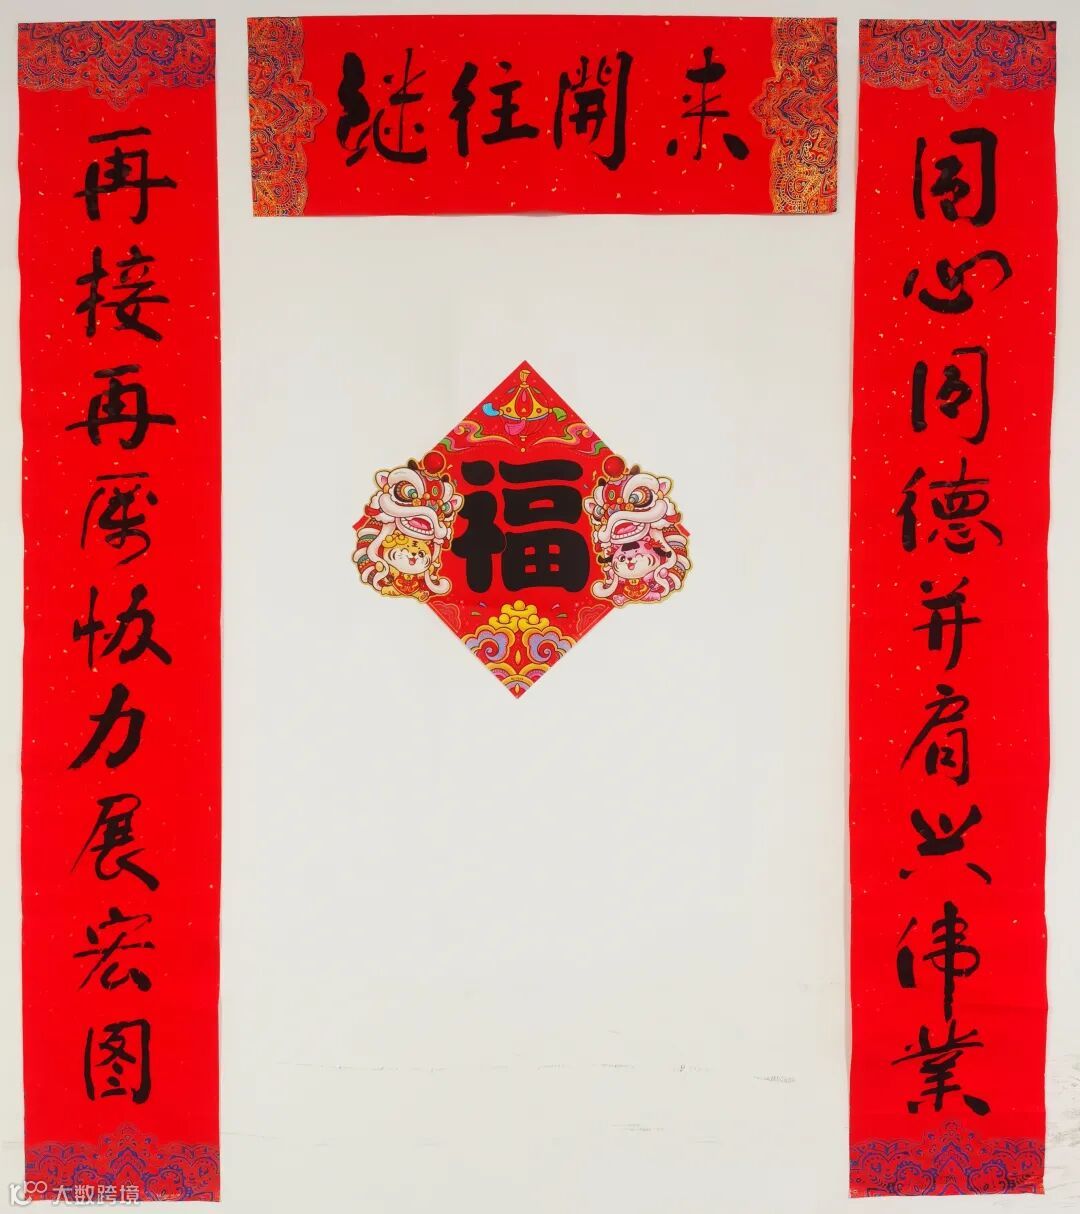 继往開来
同心同德并肩兴伟業
再接再厉协力展宏图
福
大数跨境